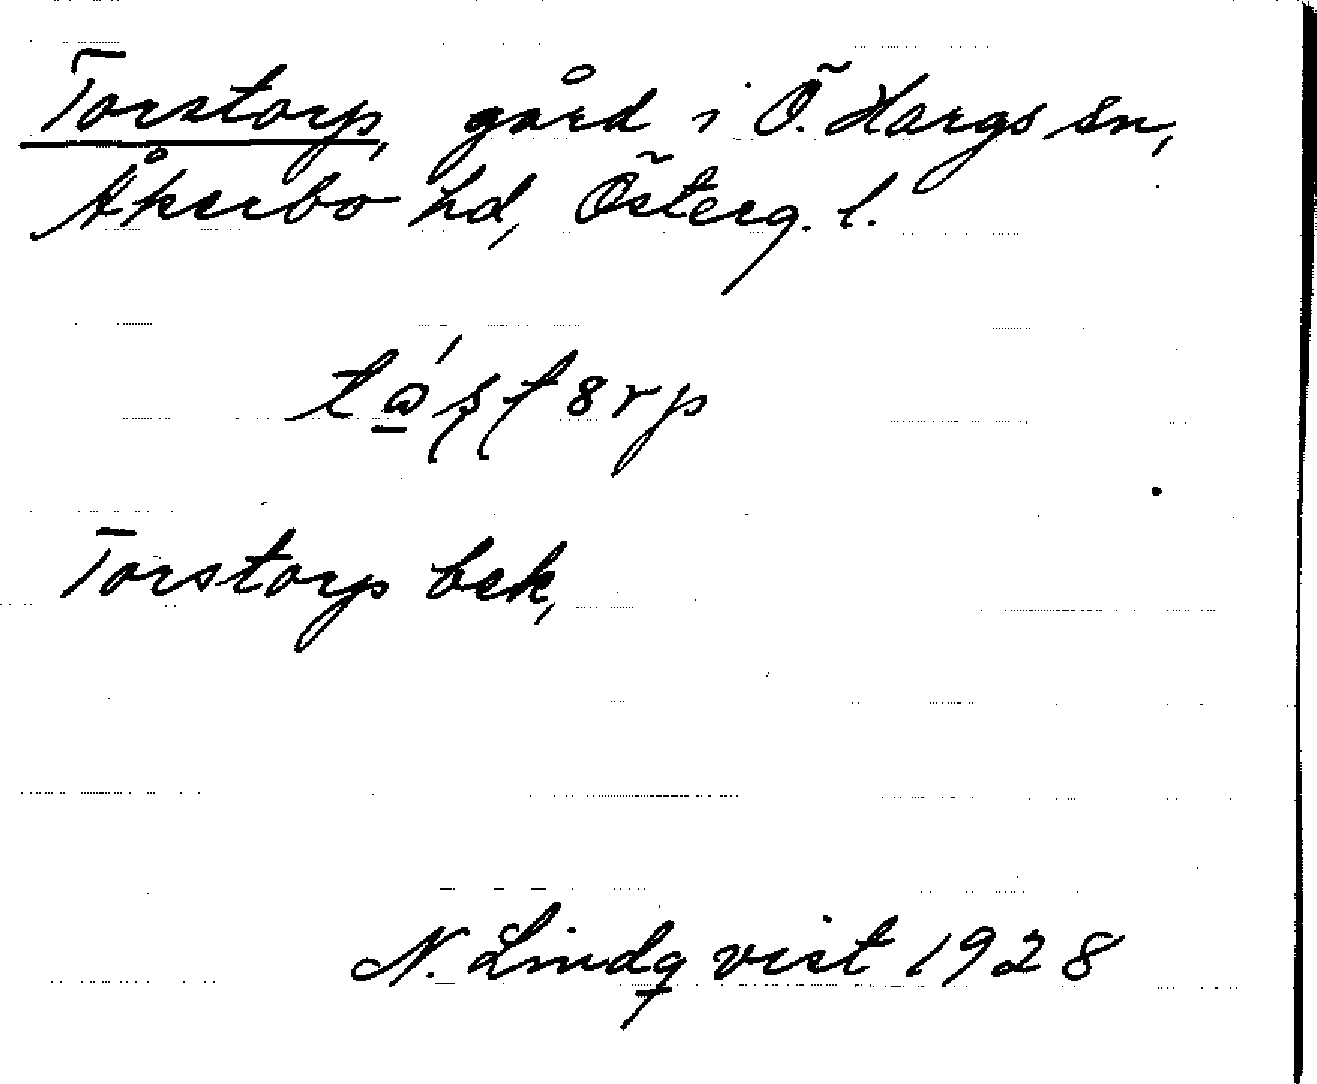 Torstorp, gård i Ö. Hargs sn,
Åkerbo hd, Österg. l.
Torstorp bek,
N. Lindqvist 1928